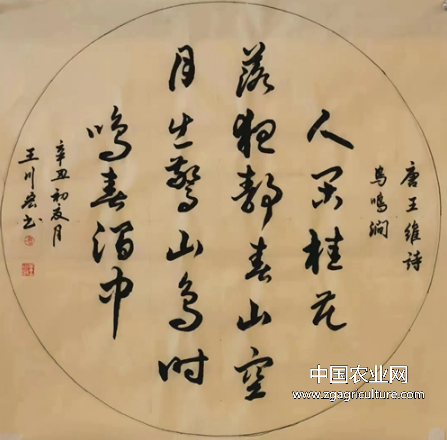 唐王維詩
鸟鸣涧
人闲桂花
落夜静春山空
月出驚山鸟时
鸣春涧中
辛丑初夏月
王川书
中国农业网
www.zgagriculture.com